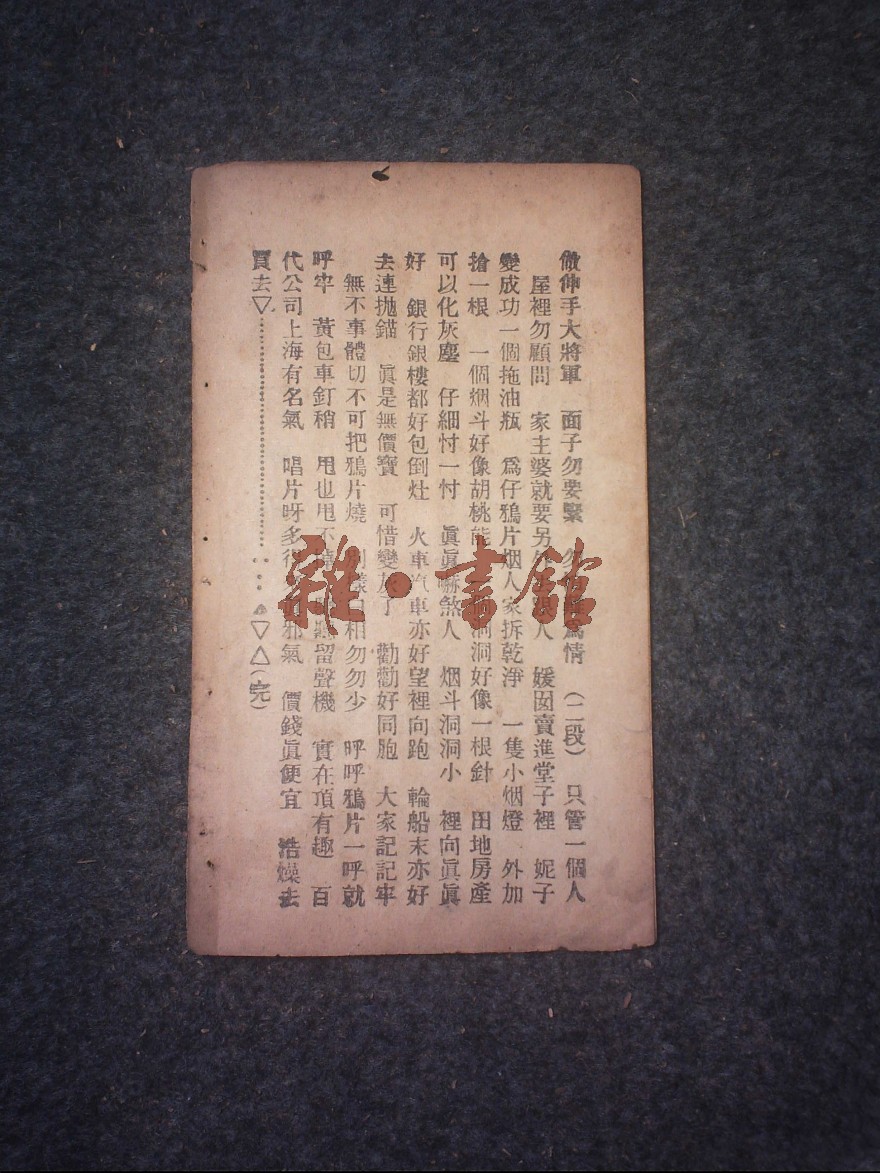 做伸手大將軍 面子勿要緊 爲情 (二段) 只管一個人
屋裡勿顧問 家主婆就要另外 人 媛囡賣進堂子裡 妮子
變成功一個拖油瓶 爲仔鴉片烟人家拆乾淨 一隻小烟燈 外加
搶一根 一個烟斗好像胡桃能 洞洞好像一根針 田地房產
可以化灰塵 仔細忖一忖 眞眞嚇煞人 烟斗洞洞小 裡向眞眞
好 銀行銀樓都好包倒灶 火車汽車亦好望裡向跑 輪船末亦好
去連抛錨 眞是無價寶 可惜變灰了 勸勸好同胞 大家記記牢
無不事體切不可把鴉片燒 白相勿勿少 呼呼鴉片一呼就
呼牢 黃包車釘稍 甩也甩不 留聲機 實在項有趣 百
代公司上海有名氣 唱片呀多 邪氣 價錢眞便宜 浩燥去
買去▽ △▽△(完)
雜·書館